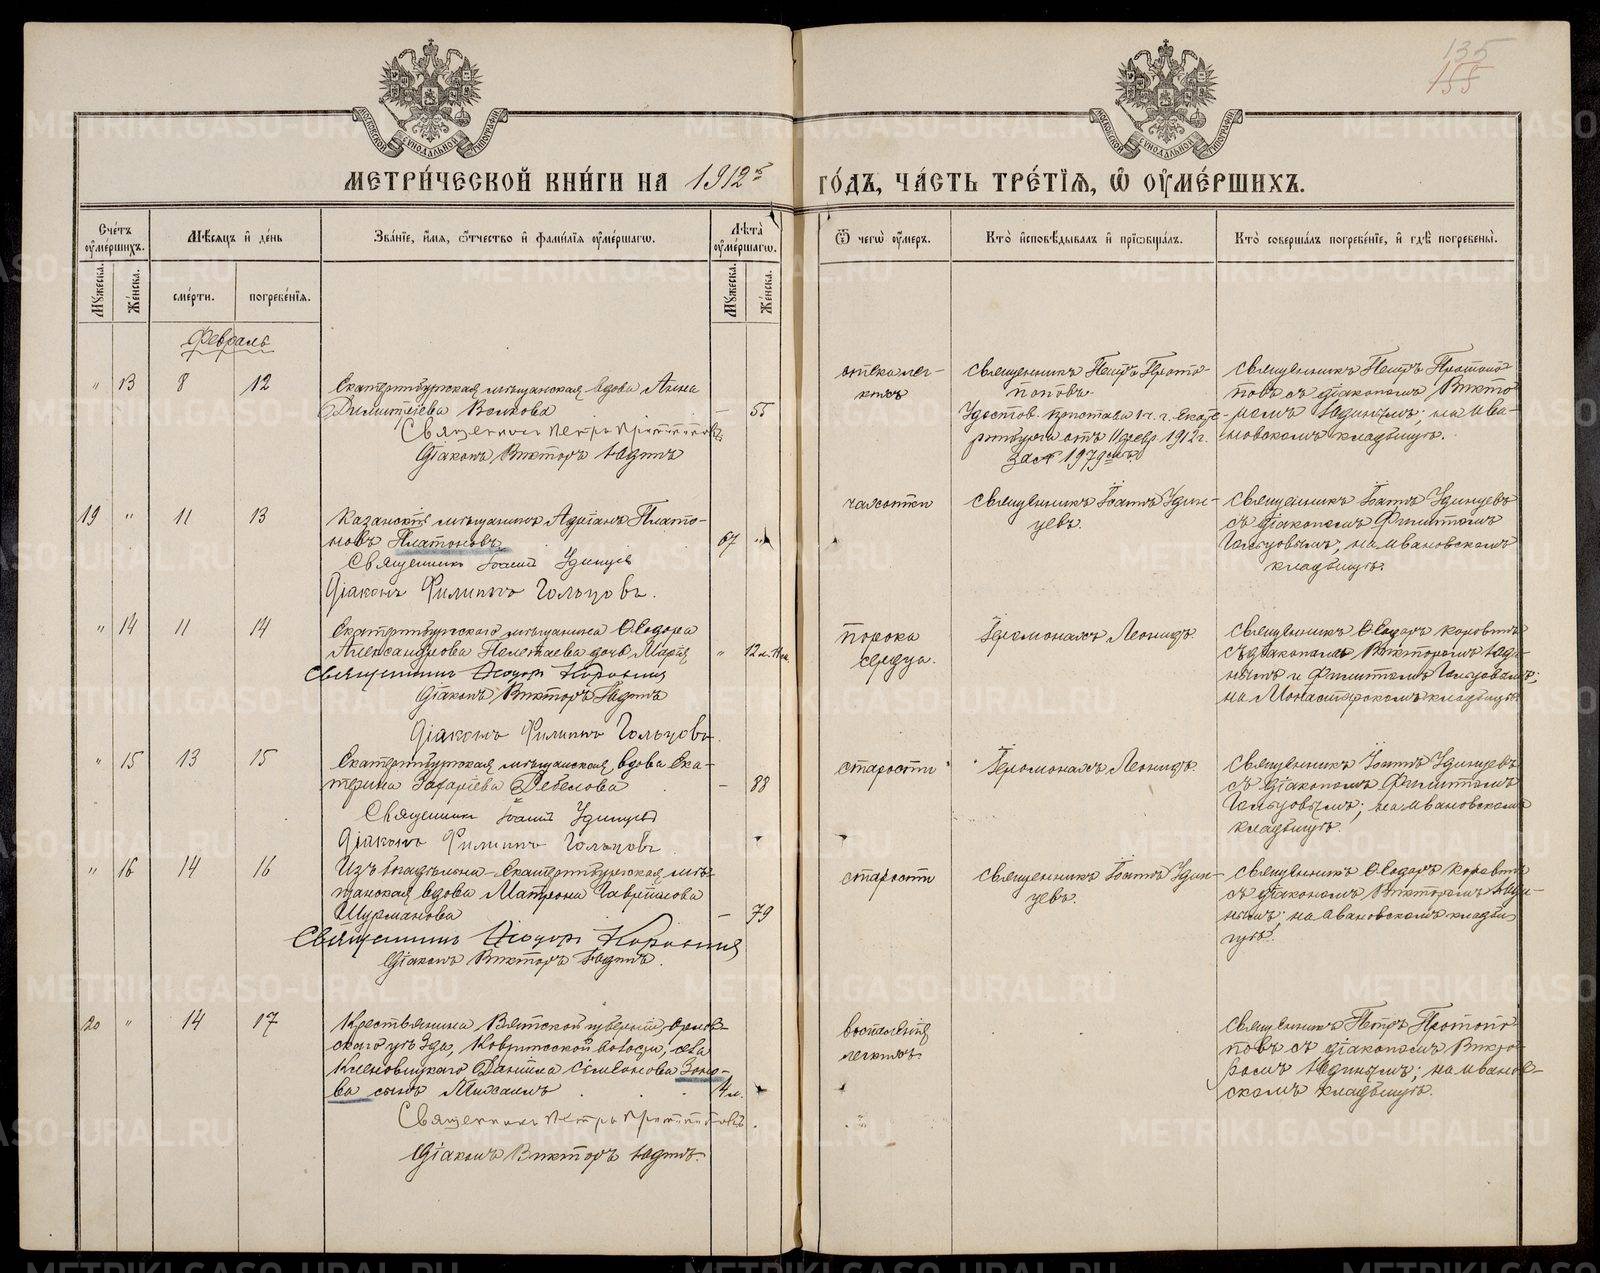 135
155
МОСКОВСКОЙ СУНОДАЛЬНОЙ ТИПОГРАФИИ
МОСКОВСКОЙ СУНОДАЛЬНОЙ ТИПОГРАФИИ
МЕТРИ́ЧЕСКОЙ КНИ́ГИ НА 1912 ГО́ДЪ, ЧА́СТЬ ТРЕ́ТІѦ, Ѽ ОУ҆МЕ́РШИХЪ.
Сче́тъ оу҆ме́ршихъ.
Мѣ́сяцъ и҆ де́нь
Зва́ніе, и҆́мя, ѻ҆́тчество и҆ фами́лія оу҆ме́ршагѡ.
Лѣ́та оу҆ме́ршагѡ.
Ѿ чегѡ̀ оу҆́меръ.
Кто̀ и҆сповѣ́дывалъ и҆ прїѡбща́лъ.
Кто̀ соверша́лъ погребе́ніе, и҆ гдѣ̀ погребены̀.
Мꙋ́жеска.
Же́нска.
сме́рти.
погребе́нїя.
Мꙋ́жеска.
Же́нска.
Февраль
" 13 8 12 Екатеринбургская мѣщанская вдова Анна
Димитріева Волкова – 55
Священникъ Петръ Протопоповъ
Діаконъ Викторъ Юдинъ
отека лег-
кихъ
Священникъ Петръ Прото-
поповъ.
Удостов. пристава 1 ч. г. Екате-
ринбурга отъ 11 февр. 1912 г.
за № 1979
Священникъ Петръ Протопо-
повъ съ діакономъ Викто-
ромъ Юдинымъ; на Ива-
новскомъ кладбищѣ.
19 " 11 13 Казанскій мѣщанинъ Адріанъ Плато-
новъ Платоновъ 67 "
Священникъ Іоаннъ Удинцевъ
Діаконъ Филиппъ Гольцовъ.
чахотки
Священникъ Іоаннъ Удин-
цевъ.
Священникъ Іоаннъ Удинцевъ
съ діакономъ Филиппомъ
Гольцовымъ, на Ивановскомъ
кладбищѣ.
" 14 11 14 Екатеринбургскаго мѣщанина Ѳеодора
Александрова Полетаева дочь Марія " 12 л. 11 м.
Священникъ Ѳеодоръ Коровинъ
Діаконъ Викторъ Юдинъ
Діаконъ Филиппъ Гольцовъ.
порока
сердца.
Іеромонахъ Леонидъ.
Священникъ Ѳеодоръ Коровинъ
съ діакономъ Викторомъ Юди-
нымъ и Филиппомъ Гольцовымъ;
на Монастырскомъ кладбищѣ.
" 15 13 15 Екатеринбургская мѣщанская вдова Ека-
терина Захаріева – 88
Священникъ Іоаннъ Удинцевъ
Діаконъ Филиппъ Гольцовъ
старости
Іеромонахъ Леонидъ.
Священникъ Іоаннъ Удинцевъ
съ діакономъ Филиппомъ
Гольцовымъ; на Ивановскомъ
кладбищѣ.
" 16 14 16 Изъ богадѣльни Екатеринбургская мѣ-
щанская вдова Матрона Гаврилова
Шурманова – 79
Священникъ Ѳеодоръ Коровинъ
Діаконъ Викторъ Юдинъ.
старости
Священникъ Іоаннъ Удин-
цевъ.
Священникъ Ѳеодоръ Коровинъ
съ діакономъ Викторомъ Юди-
нымъ; на Ивановскомъ кладби-
щѣ.
20 " 14 17 Крестьянина Вятской губерніи, Орлов-
скаго уѣзда, волости, села
Кленовицкаго Даніила Симеонова Зоно-
ва сынъ Михаилъ 4 м.
Священникъ Петръ Протопоповъ.
Діаконъ Викторъ Юдинъ.
воспаленія
легкихъ.
Священникъ Петръ Протопо-
повъ съ діакономъ Викто-
ромъ Юдинымъ; на Иванов-
скомъ кладбищѣ.
METRIKI.GASO-URAL.RU